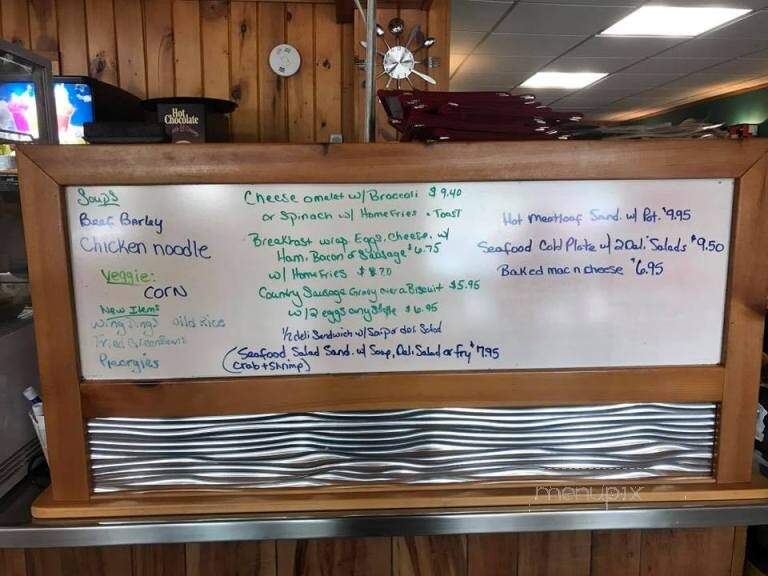 Hot
Chocolate
Soups
Beef Barley
Chicken noodle
Veggie:
CORN
New Items
Wing dings wild rice
Fried Green Beans
Pieorgies
Cheese omelet w/ Broccoli $9.40
or Spinach w/ HomeFries + Toast
Breakfast wrap Eggs, Cheese, w/
Ham, Bacon or Sausage $6.75
w/ HomeFries $8.70
Country Sausage Gravy over a Biscuit $5.95
w/ 2 eggs any style $6.95
1/2 deli Sandwich w/ Soup or deli Salad
(Seafood Salad Sand. w/ Soup, Deli Salad or Fry $7.95
Crab + Shrimp)
Hot Meatloaf Sand. w/ Pot. $9.95
Seafood Cold Plate w/ 2 Deli Salads $9.50
Baked mac n cheese $6.95
menupix